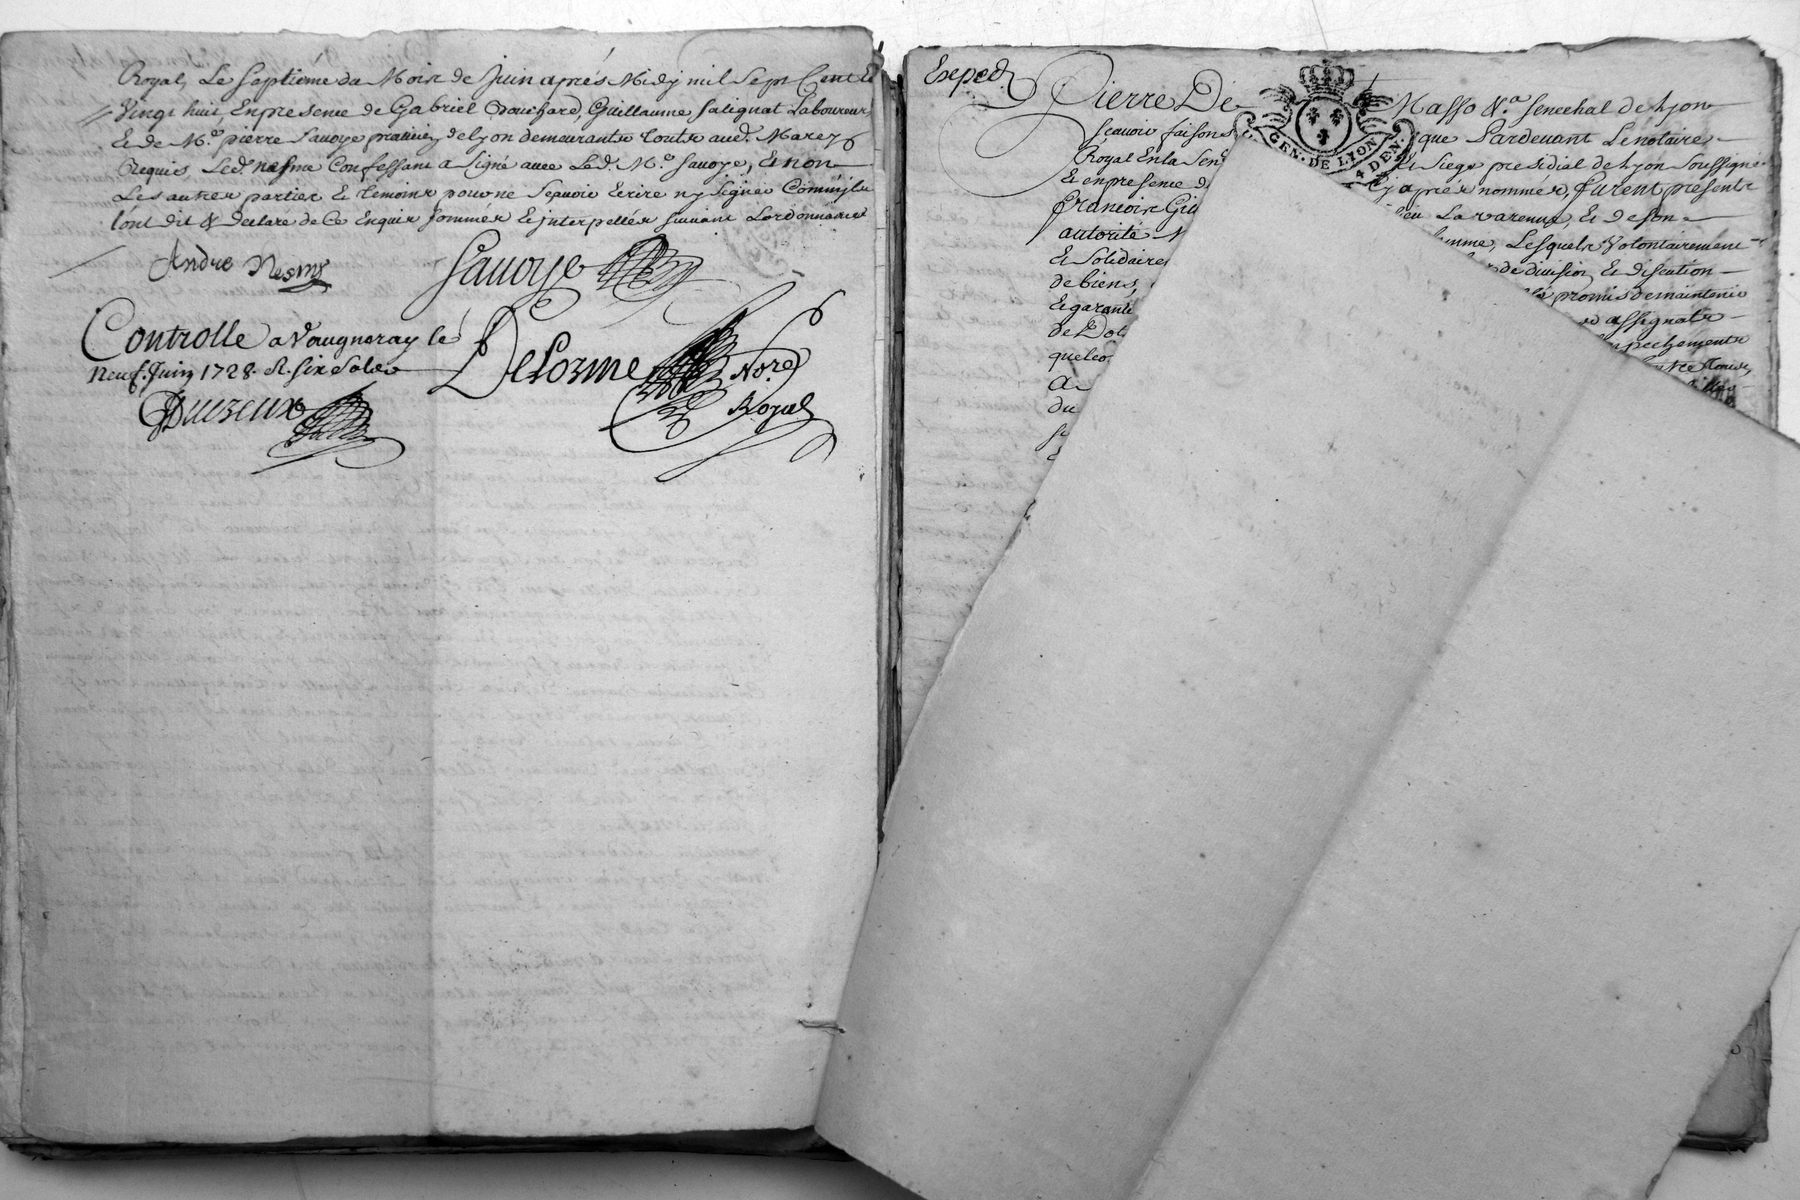 Royal, Le Septiéme du Mois de Juin aprés Midy mil Sept Cent Et
Vingt huit, En presence de Gabriel Bouchard, Guillaume Salignat Laboureurs
Et de Me. pierre Savoye praticien de lyon demeurants touts aud. Marcy
Requis, Led. nesme Confessant a Signé avec Led. Me. Savoye, Et non
Les autres parties Et temoins pour ne Sçavoir Ecrire ny Signer Comm'jls
lont dit & Declare de Ce Enquis Sommés Et jnterpellés Suivant Lordonnance
Andre Nesme
Savoye
Controlle a Vaugneray le
Neuf. Juin 1728. R. Six Sols
Delorme Nore.
Royal
Exped.
Pierre De Masso Sr. Senechal de Lyon
Scavoir faisons que Pardevant Le notaire
Royal En la Sen. Et Siege presidial de Lyon Soussigné
Et en presence d cy apres nommés, furent presents
francoise Gi Lieu La varenne, Et de Son
autorité femme, Lesquels Volontairement
Et Solidaire de division, Et discution
de biens, promis de maintenir
Et garantir assignats
de Dot Empechements
quelco
a
du
GEN. DE LYON
4 DEN.